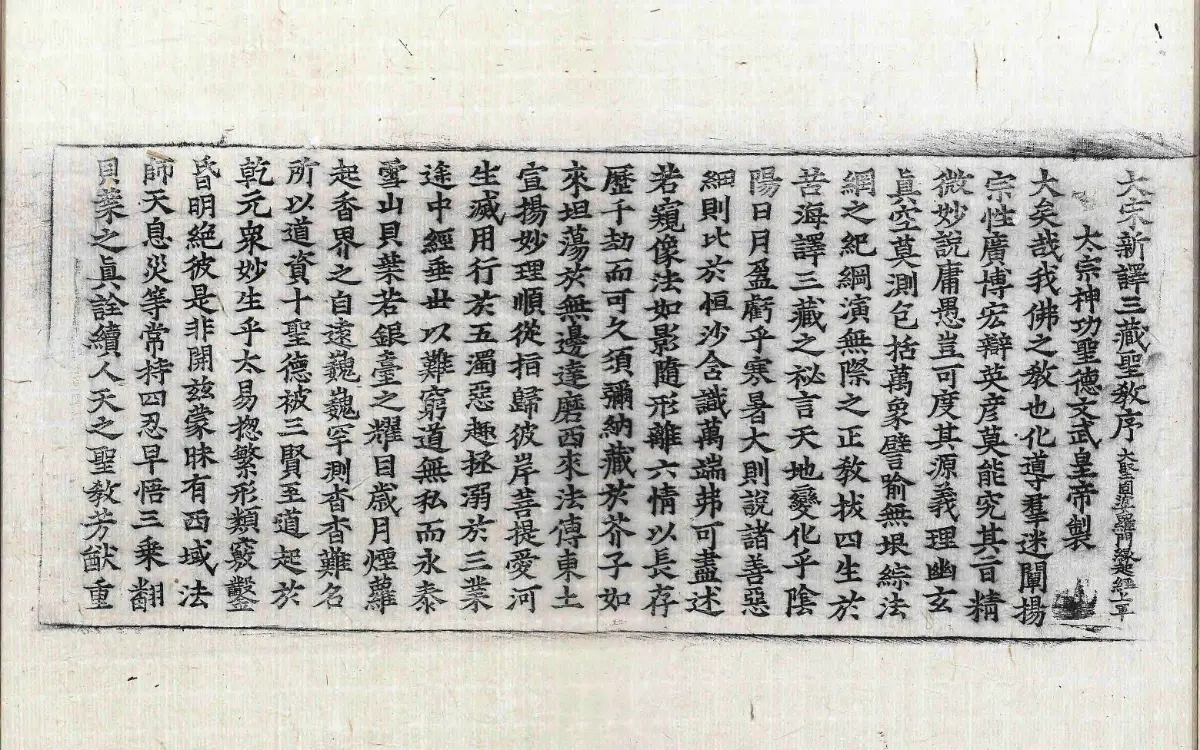 大宋新譯三藏聖教序
太宗神功聖德文武皇帝製
大矣哉我佛之教也化導羣迷闡揚
宗性廣博宏辯英彦莫能究其旨精
微妙說庸愚豈可度其源義理幽玄
眞空莫測包括萬象譬喻無垠綜法
網之紀綱演無際之正教拔四生於
苦海譯三藏之祕言天地變化乎陰
陽日月盈虧乎寒暑大則說諸善惡
細則比於恒沙含識萬端弗可盡述
若窺像法如影隨形離六情以長存
歷千劫而可久須彌納藏於芥子如
來坦蕩於無邊達磨西來法傳東土
宣揚妙理順從指歸彼岸菩提愛河
生滅用行於五濁惡趣拯溺於三業
途中經垂世以難窮道無私而永泰
雪山貝葉若銀臺之耀目歲月煙蘿
起香界之自遠巍巍罕測杳杳難名
所以道資十聖德被三賢至道起於
乾元衆妙生乎太易揔繁形類竅鑿
昏明絕彼是非開兹蒙昧有西域法
師天息災等常持四忍早悟三乘翻
貝葉之眞詮續人天之聖教芳猷重